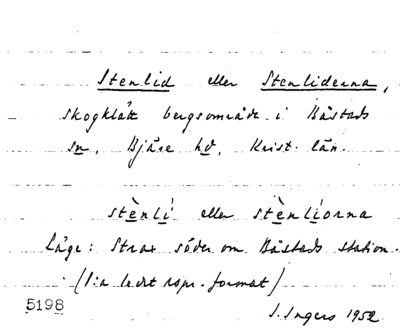 Stenlid eller Stenliderna,
skogklätt bergsområde i Båstads
sn, Bjäre hd, Krist. län.
stènlí eller stènlíorna
Läge: Strax söder om Båstads station.
(l:a ledt rspr.-format)
5198
I. Ingers 1952